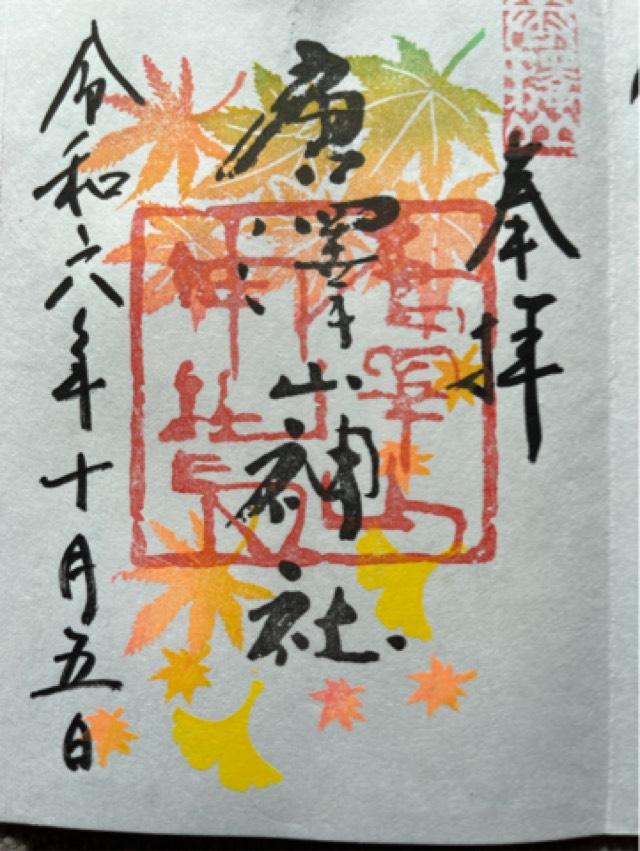 奉拝
唐澤山神社
令和六年十月五日